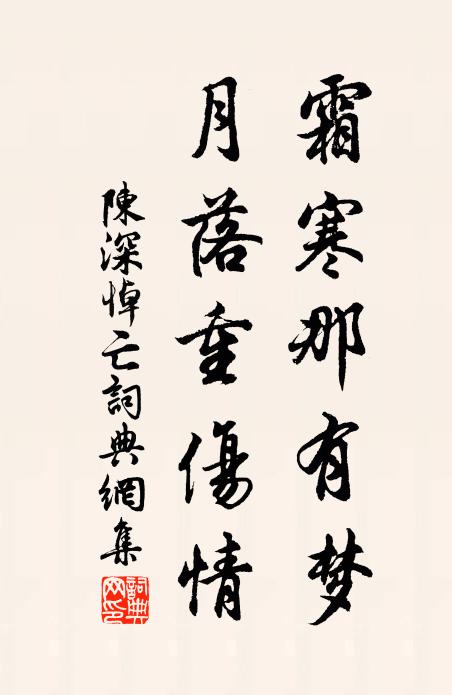 霜寒那有梦
月落重傷情
陳深悼亡詞典網集
詞典網印